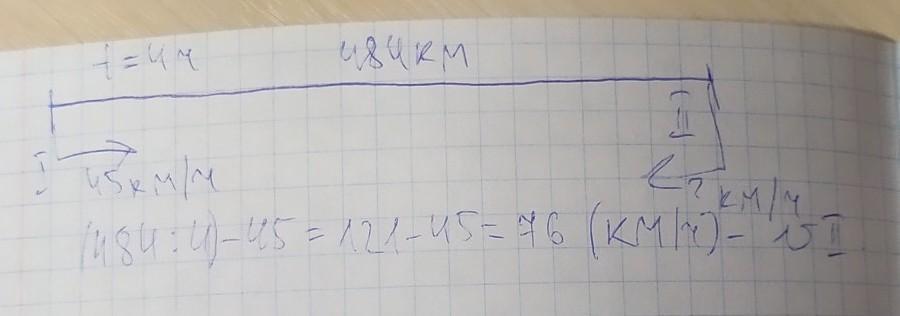 t=4ч 484км
II
I 45км/ч ? км/ч
(484:4)-45=121-45=76 (км/ч)- v II